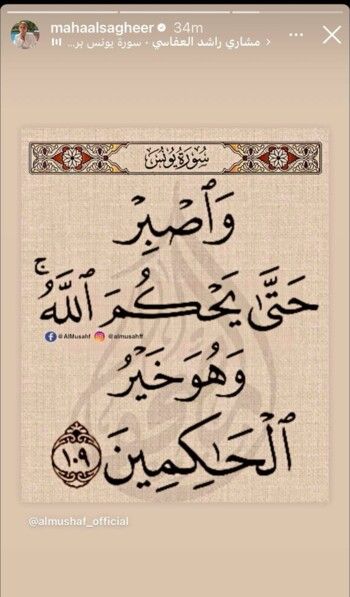 mahaalsagheer 34m
مشاري راشد العفاسي · سورة يونس بر... >
سُورَةُ يُونُسَ
وَٱصۡبِرۡ
حَتَّىٰ يَحۡكُمَ ٱللَّهُۚ
@AlMusahf @almusahff
وَهُوَ خَيۡرُ
ٱلۡحَٰكِمِينَ ١٠٩
@almushaf_official